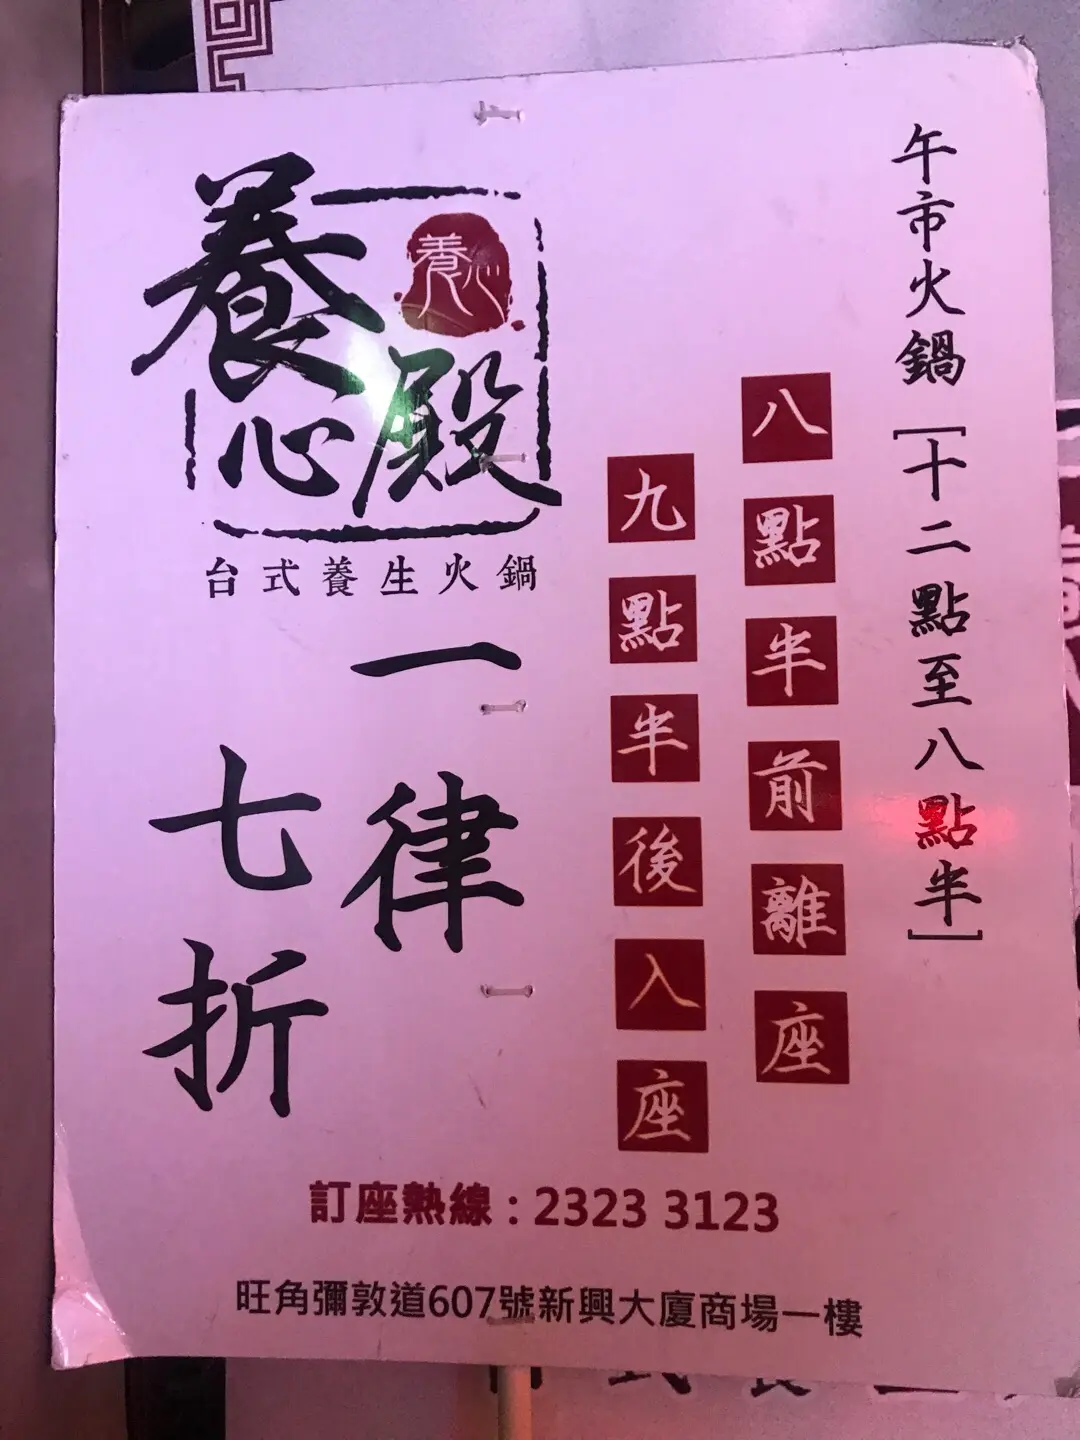 午市火鍋[十二點至八點半]
八點半前離座
九點半後入座
養心殿
養心
台式養生火鍋
一律
七折
訂座熱線：2323 3123
旺角彌敦道607號新興大廈商場一樓
台式養生